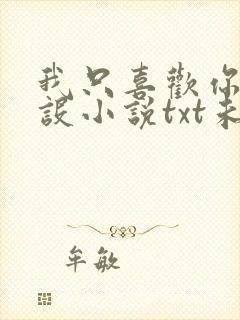 我只喜歡你
設小說txt未
牟敏